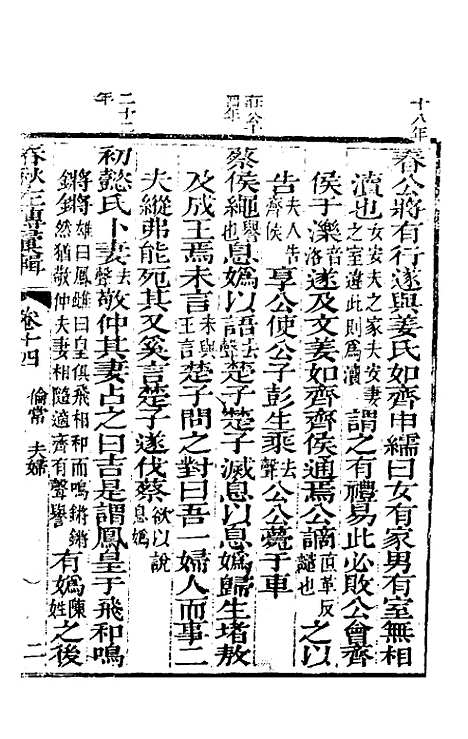 十八年
春公將有行遂與姜氏如齊申繻曰女有家男有室無相
瀆也女安夫之家夫安妻之室違此則為瀆謂之有禮易此必敗公會齊
侯于濼音洛遂及文姜如齊齊侯通焉公謫直革反譴也之以
告夫人告齊侯享公使公子彭生乘去聲公公薨于車
莊公十四年
蔡侯繩譽也息媯以語去聲楚子楚子滅息以息媯歸生堵敖
及成王焉未言未與王言楚子問之對曰吾一婦人而事二
夫縱弗能死其又奚言楚子遂伐蔡欲以說息媯
二十二年
初懿氏卜妻去聲敬仲其妻占之曰吉是謂鳳皇于飛和鳴
鏘鏘雄曰鳳雌曰皇俱飛相和而鳴鏘鏘然猶敬仲夫妻相隨適齊有聲譽有媯陳姓之後
春秋左傳彙輯 卷十四 倫常 夫婦 二